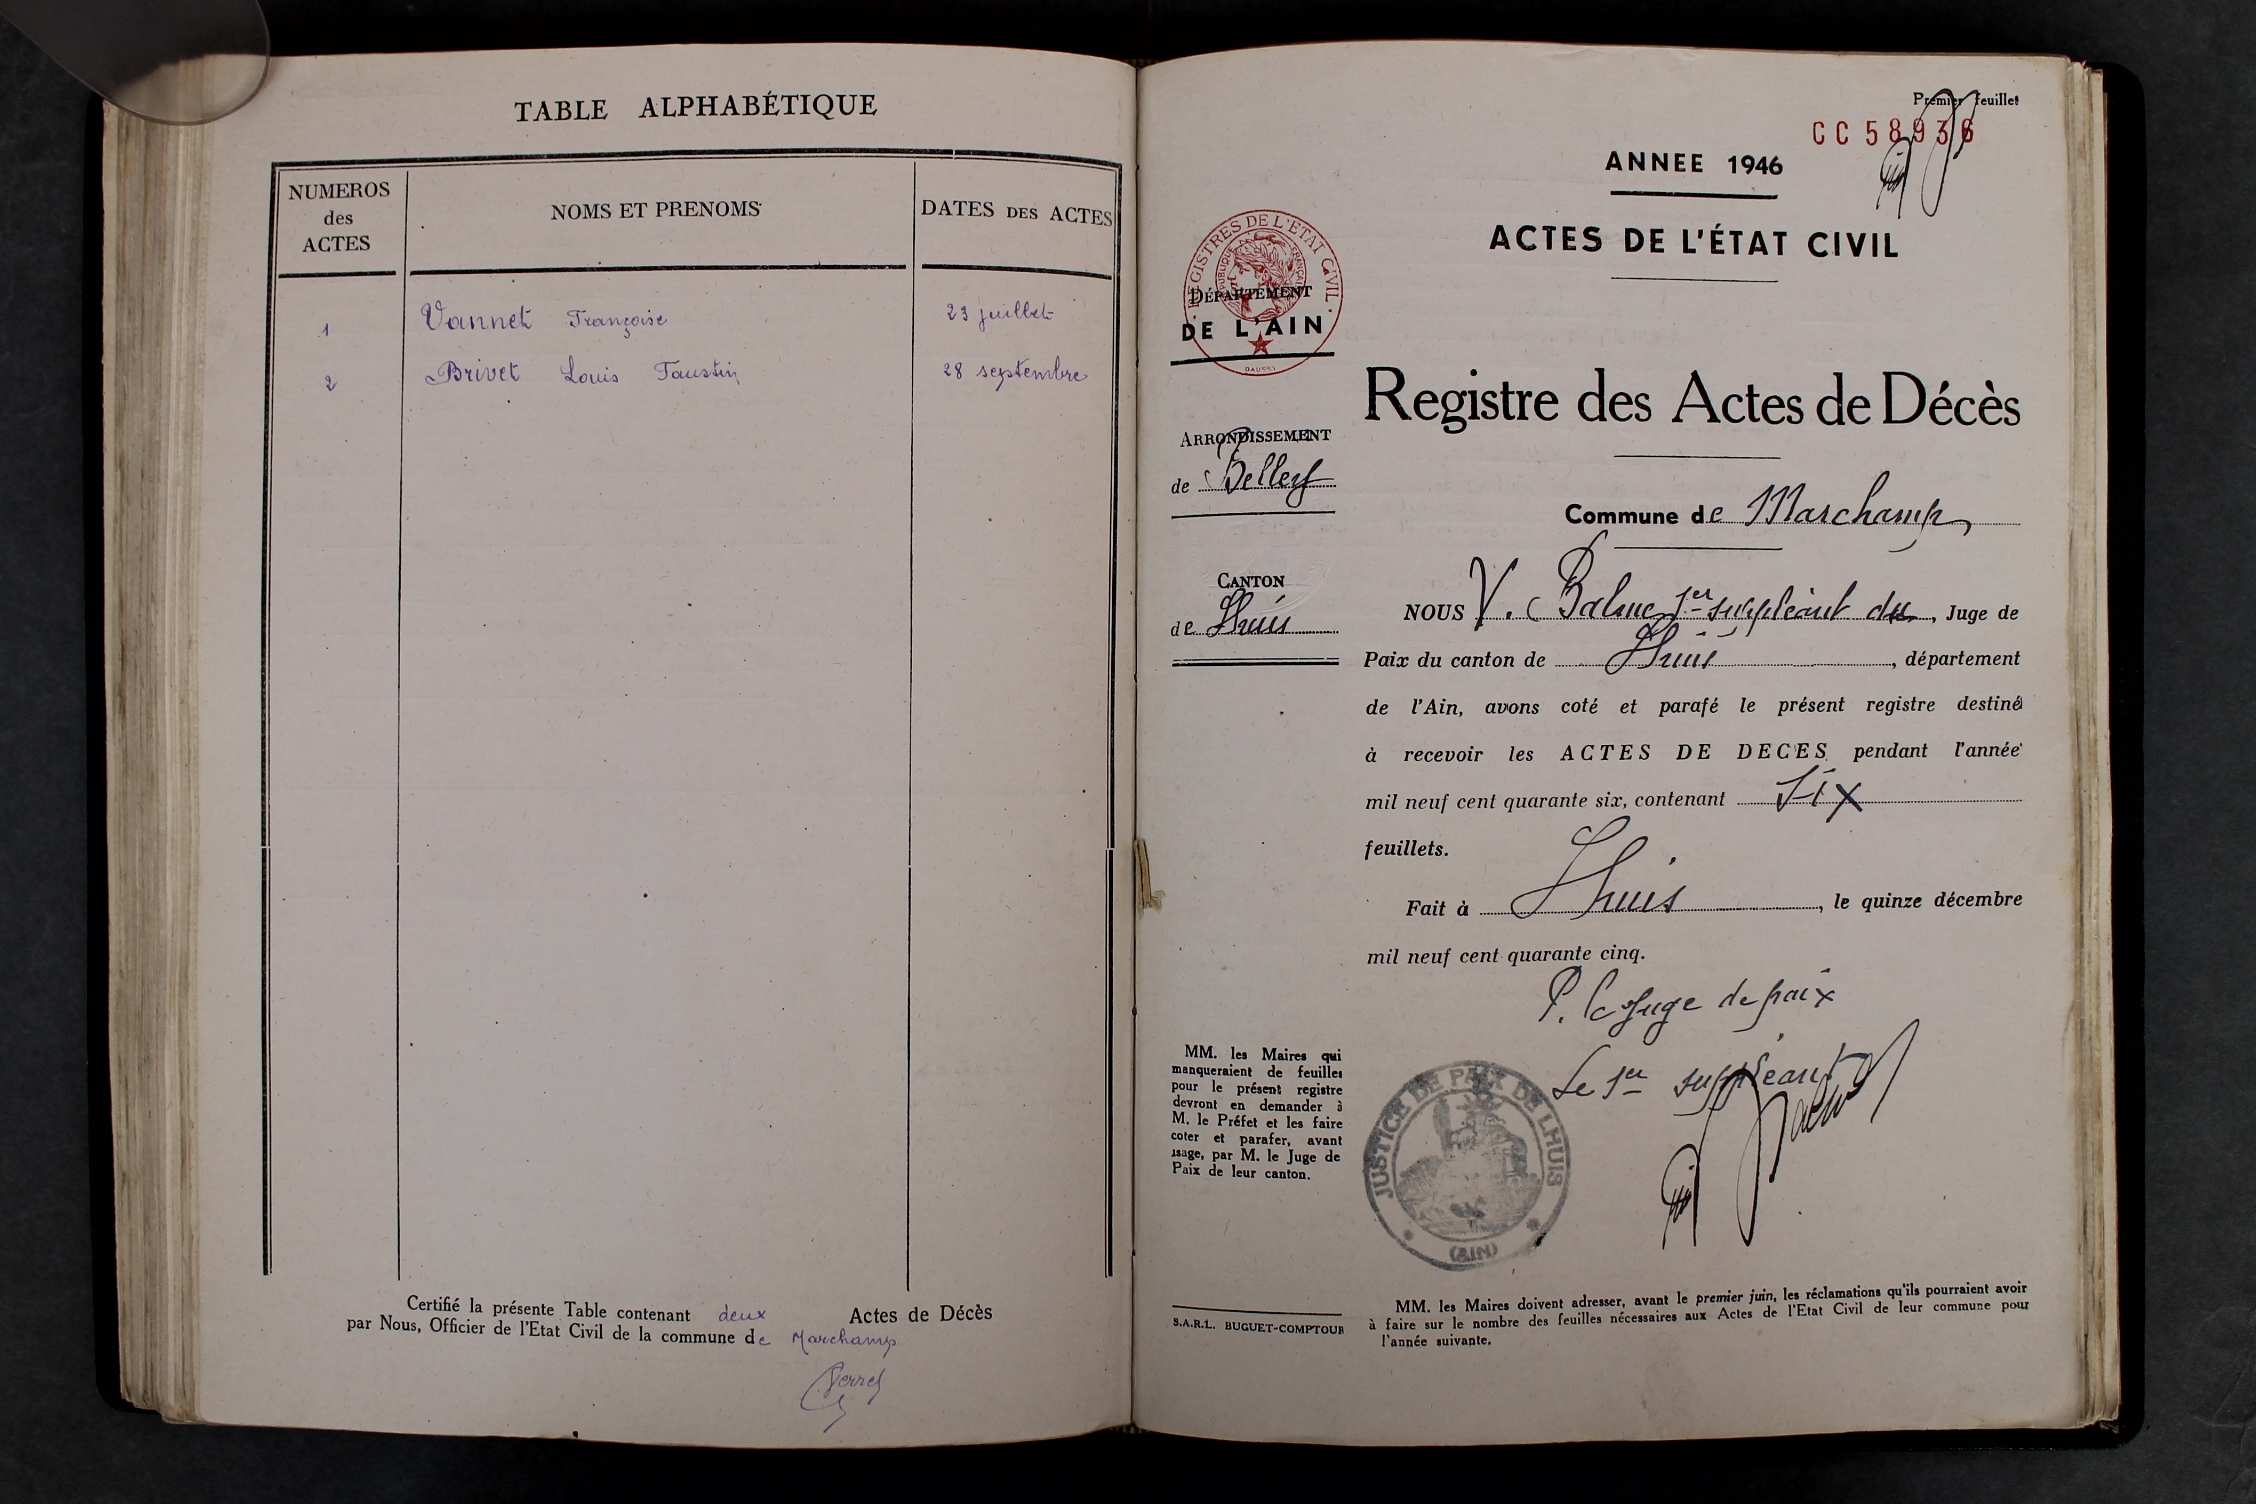 TABLE ALPHABÉTIQUE
NUMEROS
des
ACTES
NOMS ET PRENOMS
DATES DES ACTES
1 Vannet Françoise 23 juillet
2 Brivet Louis Faustin 28 septembre
Certifié la présente Table contenant deux Actes de Décès
par Nous, Officier de l'Etat Civil de la commune de Marchamp
Premier feuillet
CC 58936
ANNEE 1946
ACTES DE L'ÉTAT CIVIL
REGISTRES DE L'ETAT CIVIL
DÉPARTEMENT
DE L'AIN
Registre des Actes de Décès
ARRONDISSEMENT
de Belley
Commune de Marchamp
CANTON
de Lhuis
NOUS V. Balme 1er suppléant du, Juge de
Paix du canton de Lhuis, département
de l'Ain, avons coté et parafé le présent registre destiné
à recevoir les ACTES DE DECES pendant l'année
mil neuf cent quarante six, contenant six
feuillets.
Fait à Lhuis, le quinze décembre
mil neuf cent quarante cinq.
P. le Juge de paix
Le 1er suppléant
Balme
JUSTICE DE PAIX DE LHUIS
(AIN)
MM. les Maires qui
manqueraient de feuilles
pour le présent registre
devront en demander à
M. le Préfet et les faire
coter et parafer, avant
usage, par M. le Juge de
Paix de leur canton.
S.A.R.L. BUGUET-COMPTOUR
MM. les Maires doivent adresser, avant le premier juin, les réclamations qu'ils pourraient avoir
à faire sur le nombre des feuilles nécessaires aux Actes de l'Etat Civil de leur commune pour
l'année suivante.